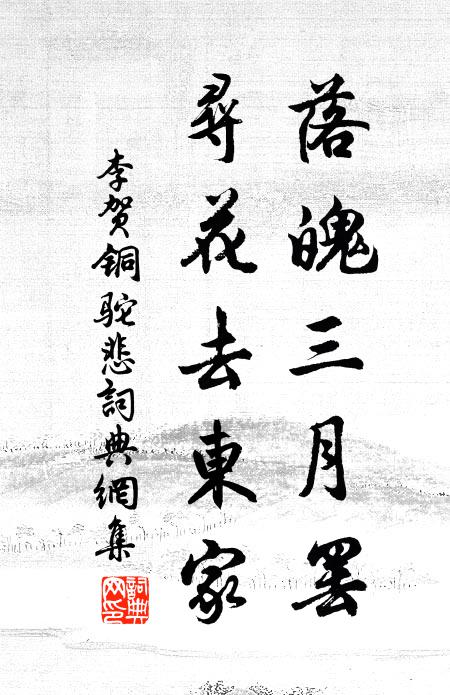 落魄三月罢
尋花去東家
李贺銅駝悲詞典網集
詞典
网印